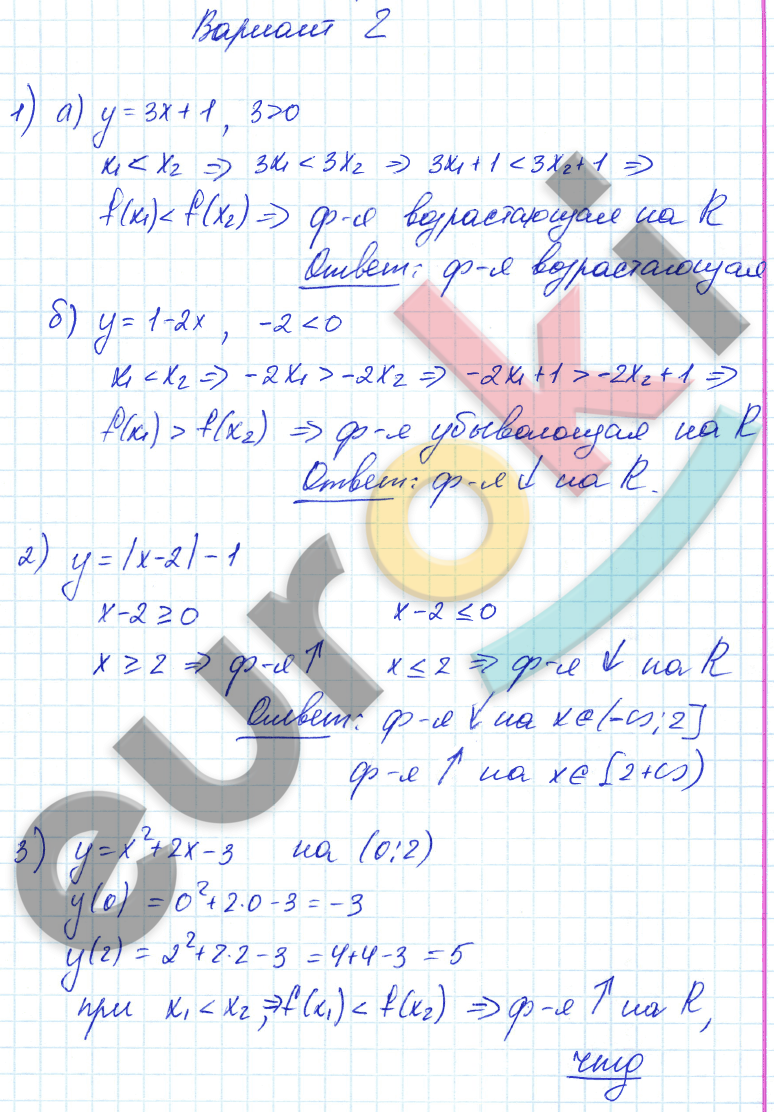 Вариант 2
1) а) y = 3x + 1, 3>0
x₁ < x₂ ⇒ 3x₁ < 3x₂ ⇒ 3x₁ + 1 < 3x₂ + 1 ⇒
f(x₁) < f(x₂) ⇒ ф-я возрастающая на R
Ответ: ф-я возрастающая
б) y = 1-2x, -2 < 0
x₁ < x₂ ⇒ -2x₁ > -2x₂ ⇒ -2x₁ + 1 > -2x₂ + 1 ⇒
f(x₁) > f(x₂) ⇒ ф-я убывающая на R
Ответ: ф-я ↓ на R.
2) y = |x-2| - 1
x-2 ≥ 0 x-2 ≤ 0
x ≥ 2 ⇒ ф-я ↑ x ≤ 2 ⇒ ф-я ↓ на R
Ответ: ф-я ↓ на x∈(-∞; 2]
ф-я ↑ на x∈[2+∞)
3) y = x² + 2x - 3 на (0; 2)
y(0) = 0² + 2·0 - 3 = -3
y(2) = 2² + 2·2 - 3 = 4+4-3 = 5
при x₁ < x₂, ⇒ f(x₁) < f(x₂) ⇒ ф-я ↑ на R,
чтд
euroki